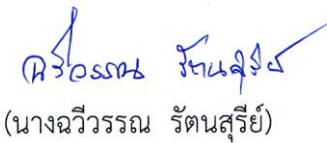 ฉวีวรรณ รัตนสุรีย์
(นางฉวีวรรณ รัตนสุรีย์)